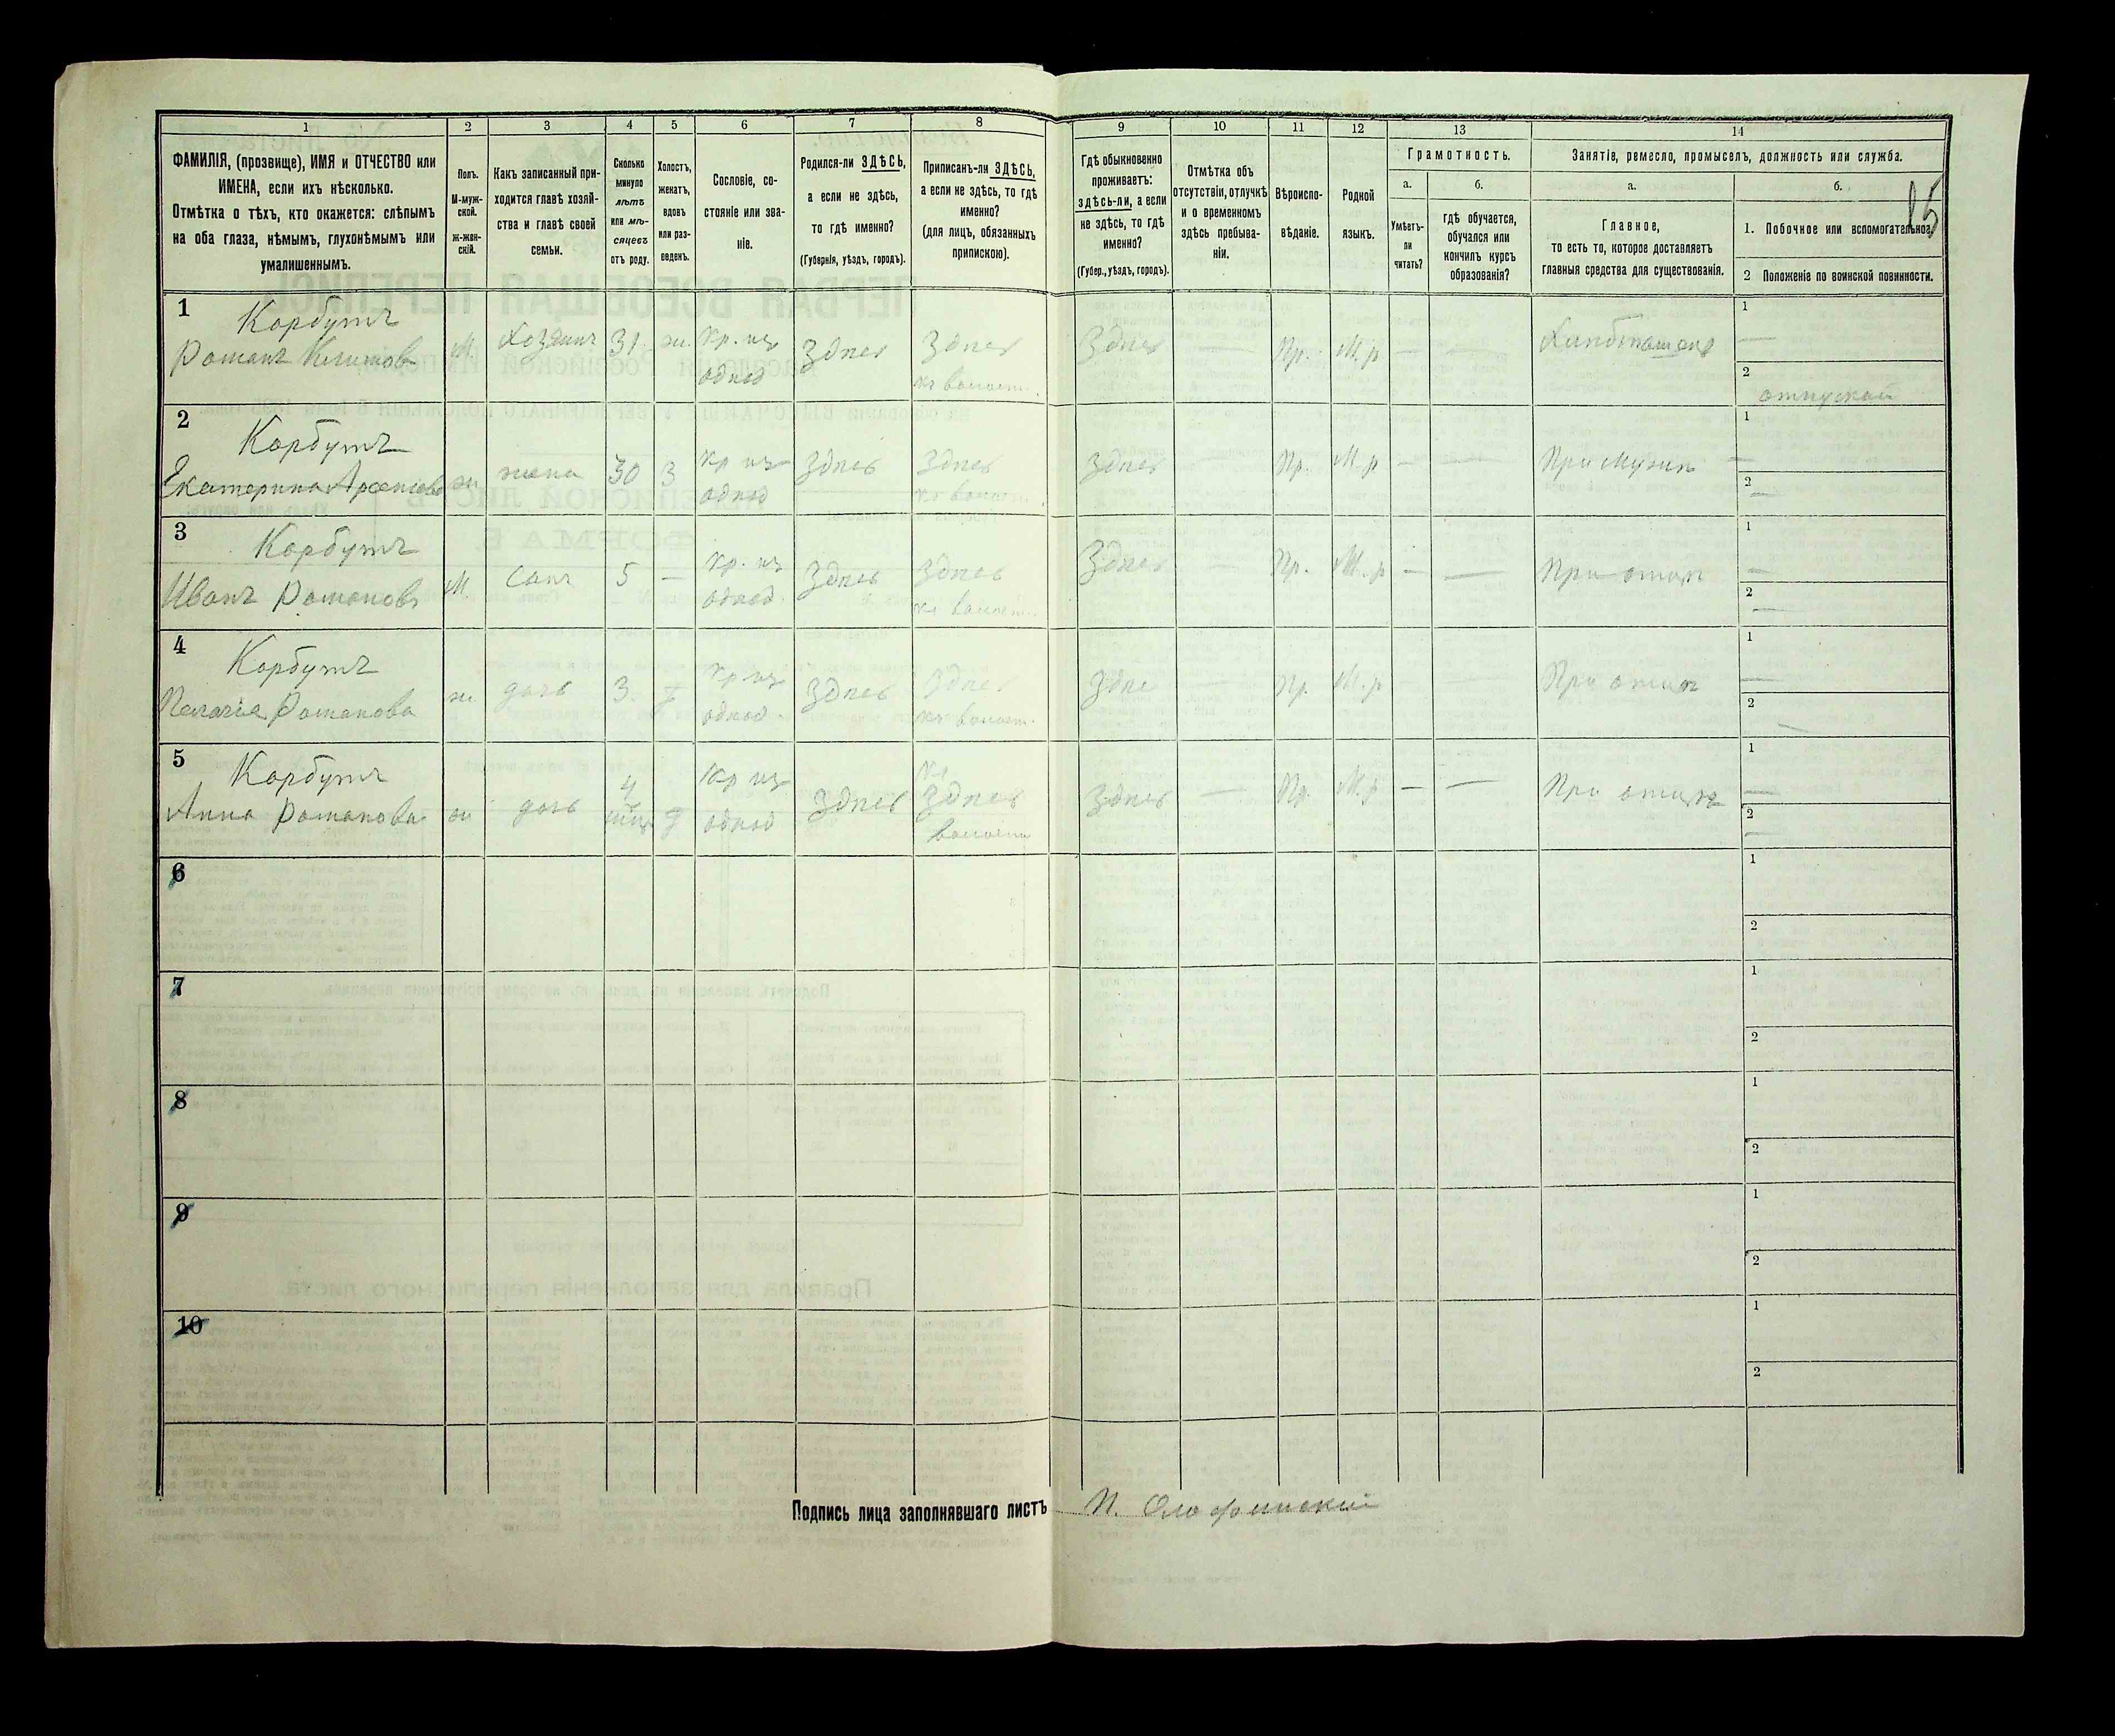 1
2
3
4
5
6
7
8
9
10
11
12
13
14
ФАМИЛІЯ, (прозвище), ИМЯ и ОТЧЕСТВО или
ИМЕНА, если ихъ нѣсколько.
Отмѣтка о тѣхъ, кто окажется: слѣпымъ
на оба глаза, нѣмымъ, глухонѣмымъ или
умалишеннымъ.
Полъ.
М-муж-
ской.
ж-жен-
скій.
Какъ записанный при-
ходится главѣ хозяй-
ства и главѣ своей
семьи.
Сколько
минуло
лѣтъ
или мѣ-
сяцевъ
отъ роду.
Холостъ,
женатъ,
вдовъ
или раз-
веденъ.
Сословіе, со-
стояніе или зва-
ніе.
Родился-ли ЗДѢСЬ,
а если не здѣсь,
то гдѣ именно?
(Губернія, уѣздъ, городъ).
Приписанъ-ли ЗДѢСЬ,
а если не здѣсь, то гдѣ
именно?
(для лицъ, обязанныхъ
припискою).
Гдѣ обыкновенно
проживаетъ:
здѣсь-ли, а если
не здѣсь, то гдѣ
именно?
(Губер., уѣздъ, городъ).
Отмѣтка объ
отсутствіи, отлучкѣ
и о временномъ
здѣсь пребыва-
ніи.
Вѣроиспо-
вѣданіе.
Родной
языкъ.
Грамотность.
а.
Умѣетъ-
ли
читать?
б.
гдѣ обучается,
обучался или
кончилъ курсъ
образованія?
Занятіе, ремесло, промыселъ, должность или служба.
а.
Главное,
то есть то, которое доставляетъ
главныя средства для существованія.
б.
1. Побочное или вспомогательное.
2 Положеніе по воинской повинности.
1
Корбутъ
Романъ Климовъ
М. Хозяинъ 31. ж. Кр. из
однод
Здпсь Здпсь
къ волост.
Здпсь Пр. М. р — — Хлпбопашецъ
1 —
2
отпуской
2
Корбутъ
Екатерина Арсеньева
ж жена 30 З Кр из
однод
Здпсь Здпсь
къ волост.
Здпсь — Пр. М. р — — При мужп
1 —
2 —
3
Корбутъ
Иванъ Романовъ
М. Сынъ 5 — Кр. из
однод.
Здпсь Здпсь
къ волост.
Здпсь — Пр. М. р — — При отцп
1 —
2 —
4
Корбутъ
Пелагія Романова
ж дочь 3. Кр из
однод.
Здпсь Здпсь
къ волост.
Здпс — Пр. М. р — — При отцп
1 —
2 —
5
Корбутъ
Анна Романова
ж дочь 4
Кр из
однод
Здпсь Здпсь
волости
Здпсь — Пр. М. р — — При отцп
1 —
2 —
6
1
2
7
1
2
8
1
2
9
1
2
10
1
2
Подпись лица заполнявшаго листъ